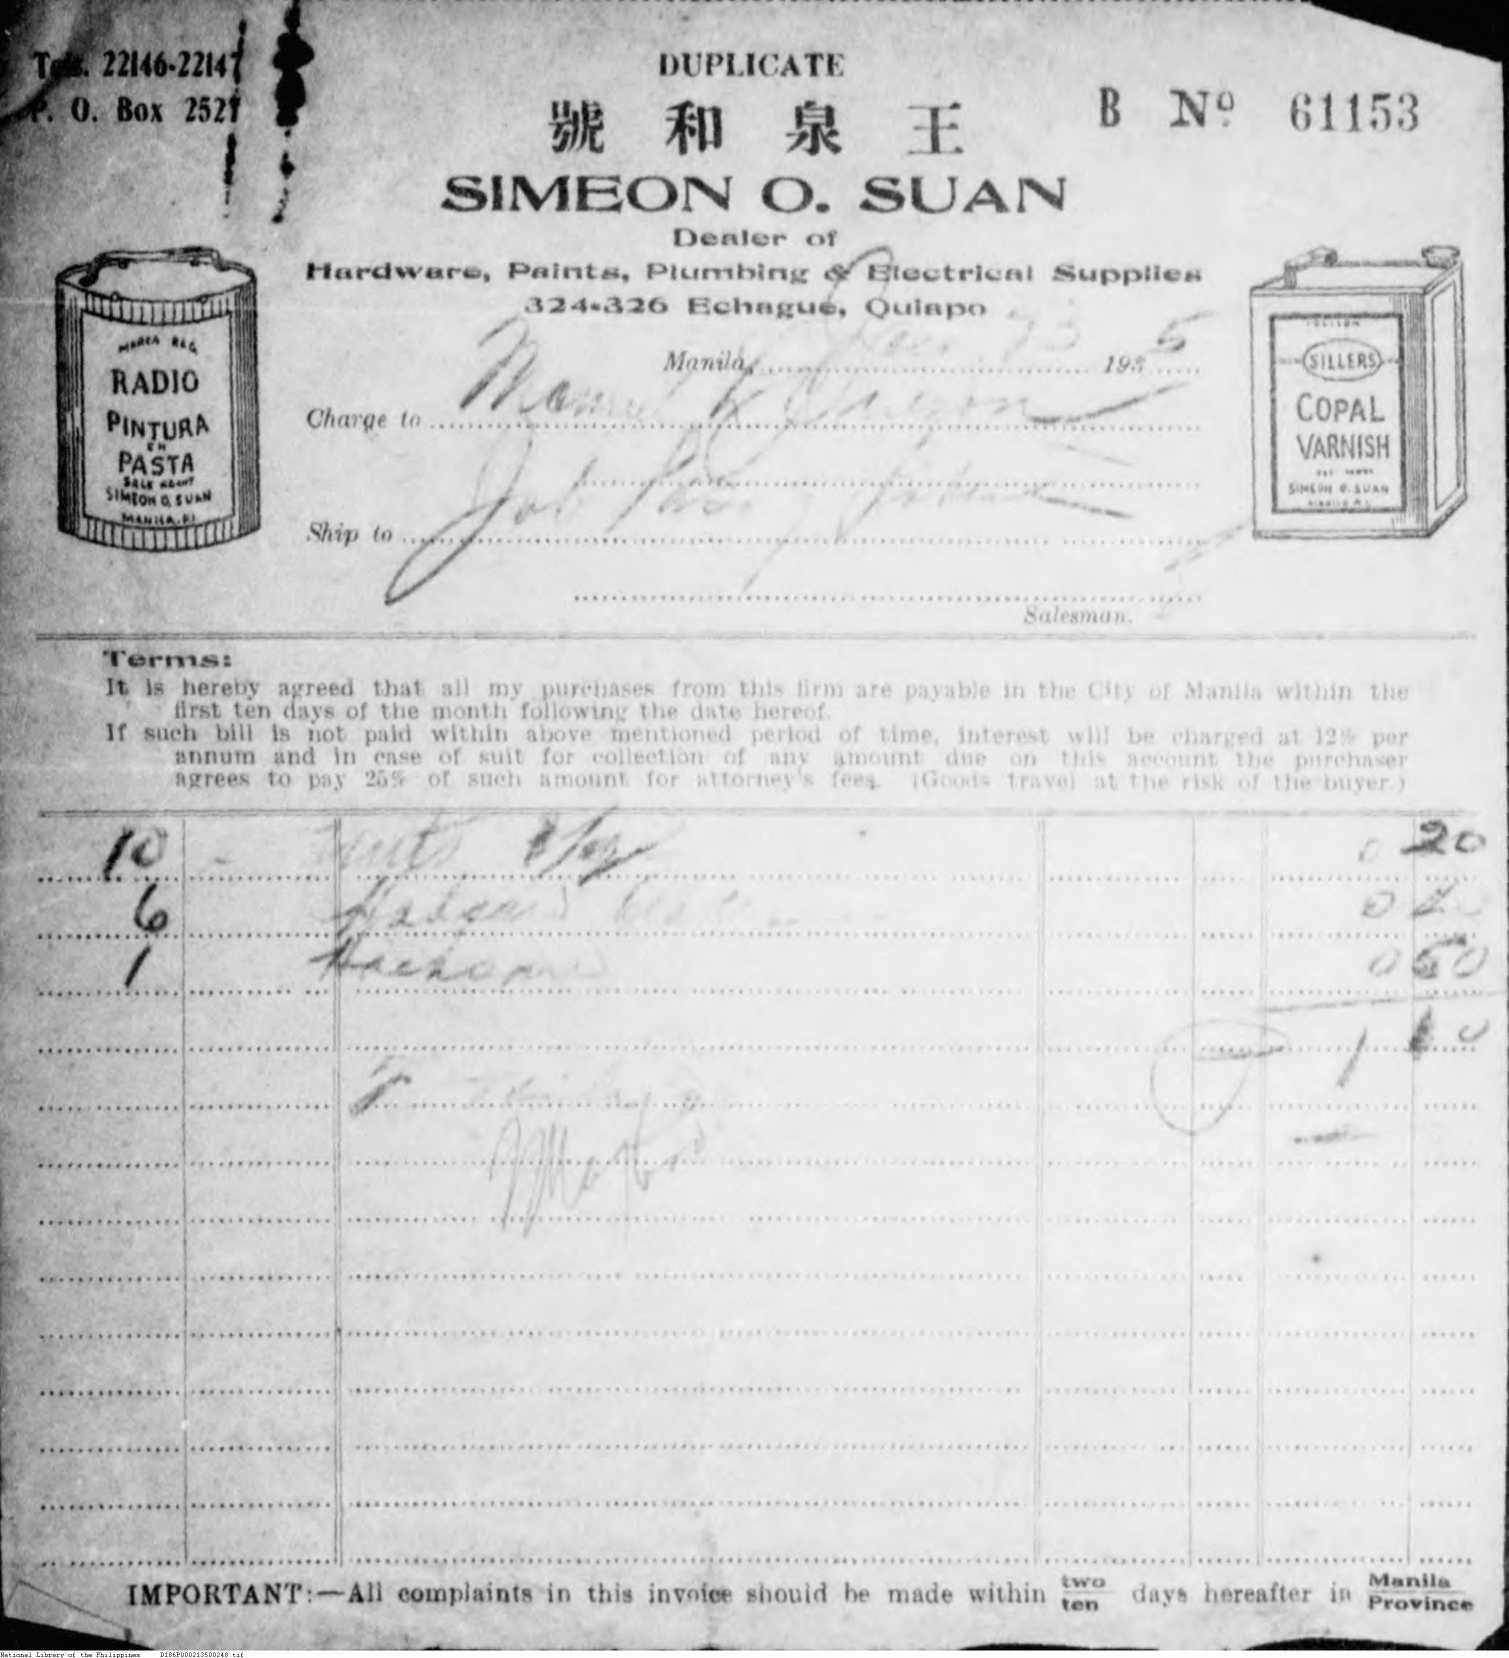 Tels. 22146-22147
P. O. Box 2527
DUPLICATE
B Nº 61153
號 和 泉 王
SIMEON O. SUAN
Dealer of
Hardware, Paints, Plumbing & Electrical Supplies
324-326 Echague, Quiapo
MARCA REG.
RADIO
PINTURA
EN
PASTA
SOLE AGENT
SIMEON O. SUAN
MANILA, P.I.
SILLERS
COPAL
VARNISH
SIMEON O. SUAN
MANILA P.I.
Manila, 1935
Charge to Manuel
Ship to Job
Salesman.
Terms:
It is hereby agreed that all my purchases from this firm are payable in the City of Manila within the
first ten days of the month following the date hereof.
If such bill is not paid within above mentioned period of time, interest will be charged at 12% per
annum and in case of suit for collection of any amount due on this account the purchaser
agrees to pay 25% of such amount for attorney's fees. (Goods travel at the risk of the buyer.)
10 0 20
6 0
1 Hacksaw 0 50
1 10
IMPORTANT:—All complaints in this invoice should be made within two/ten days hereafter in Manila/Province
National Library of the Philippines D186P000213500248.tif